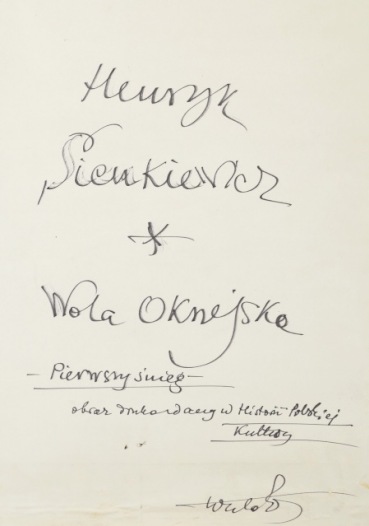 Henryk
Sienkiewicz
*
Wola Okrzejska
- Pierwszy śnieg -
obraz drukowany w Historii Polskiej
Kultury